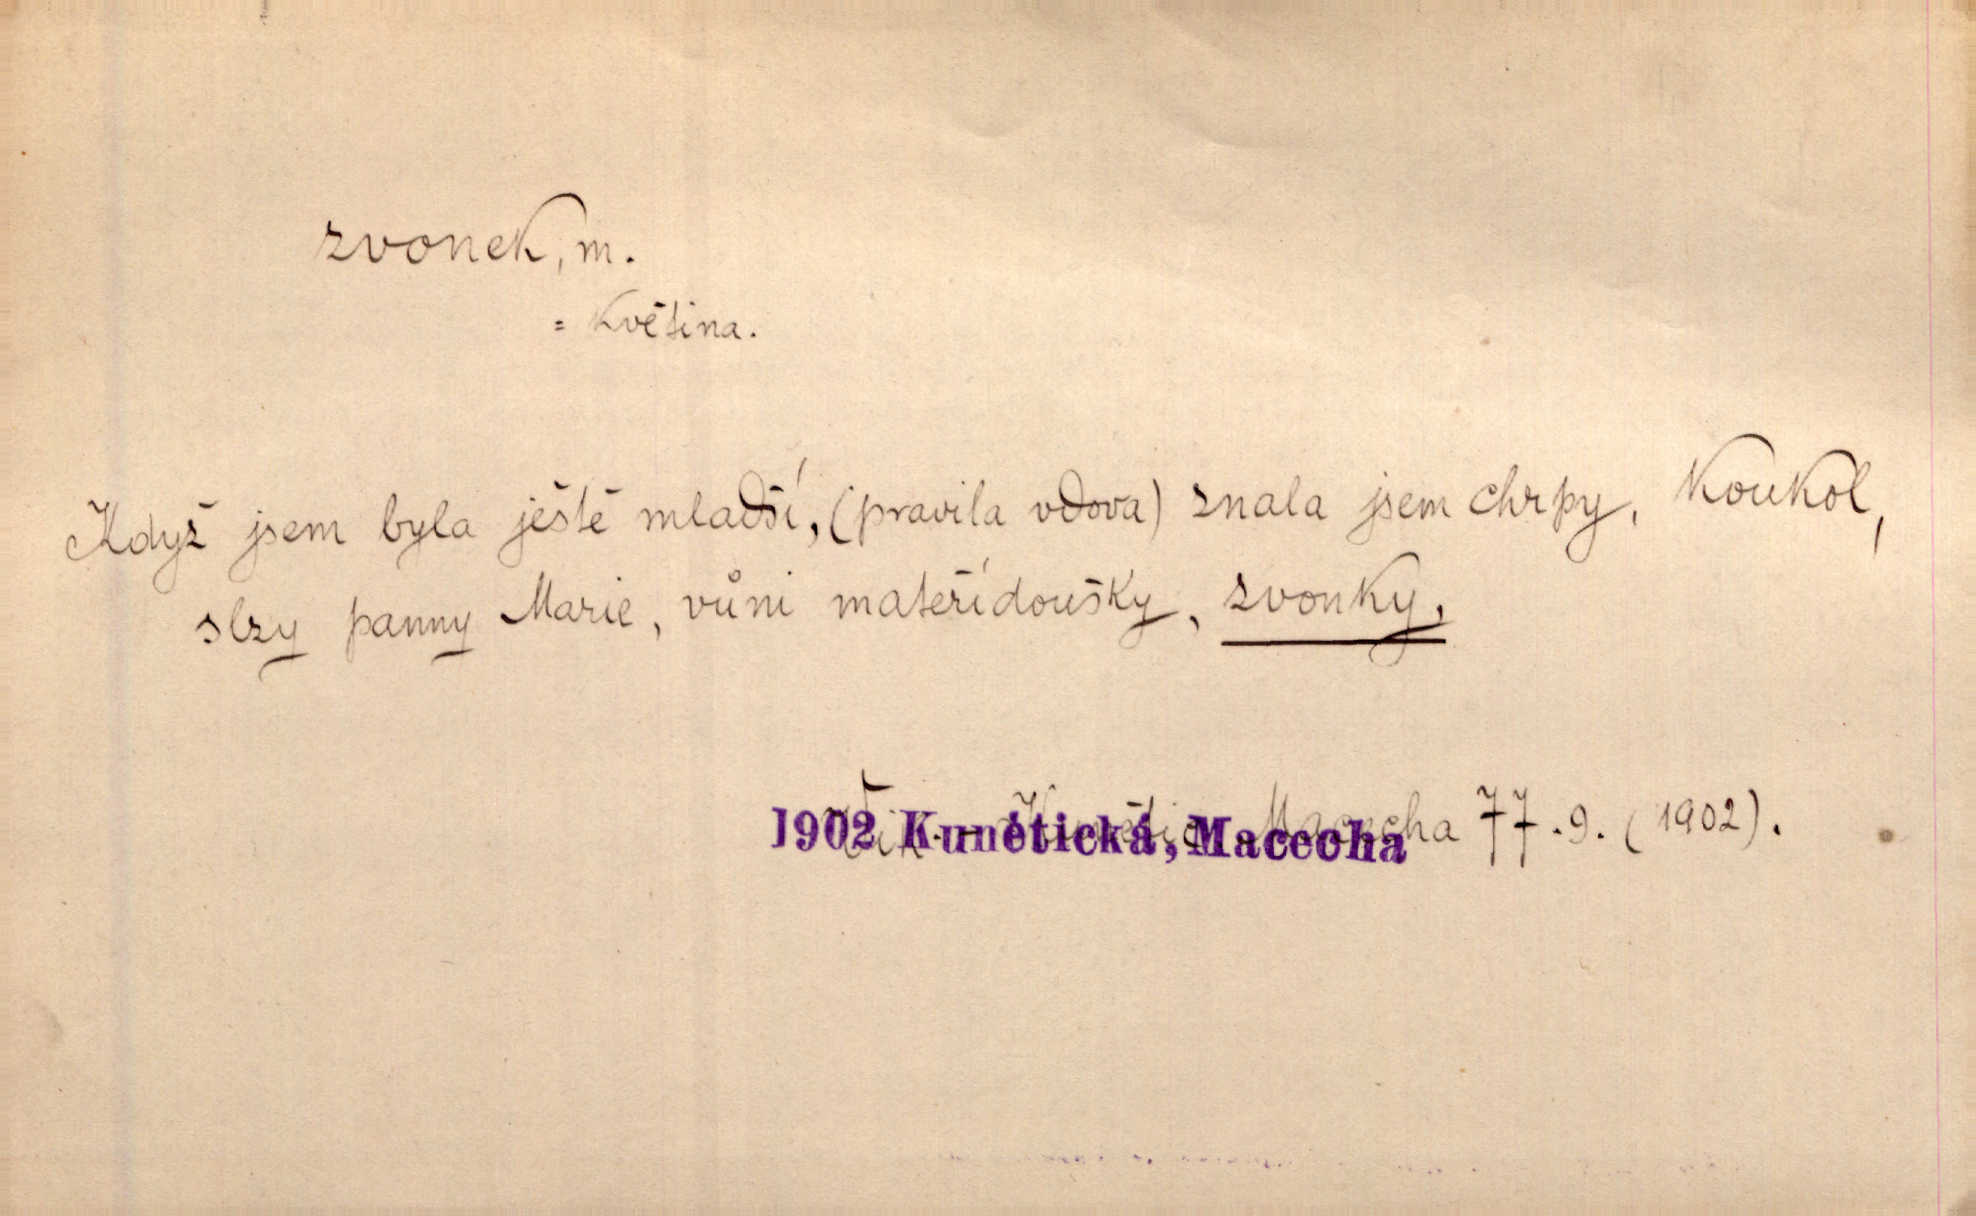 zvonek, m.
= květina.
Když jsem byla ještě mladší, (pravila vdova) znala jsem chrpy, koukol,
slzy panny Marie, vůni mateřídoušky, zvonky,
1902 Kunětická, Macecha
Macecha 77.9. (1902).